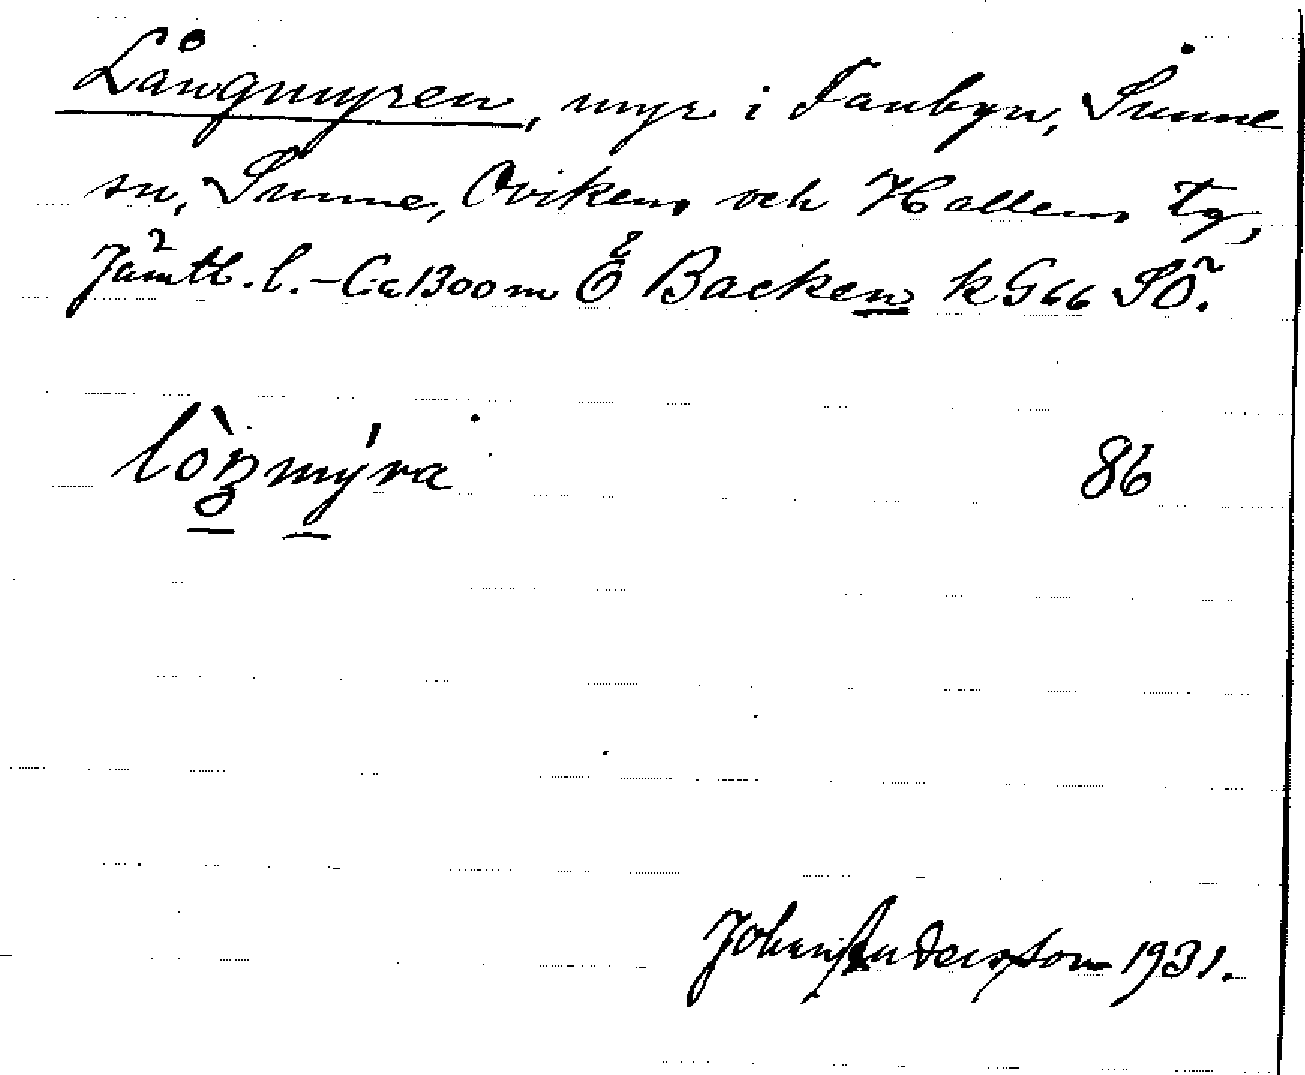 Långmyren, myr i Fanbyn, Sunne
sn, Sunne, Ovikens och Hallens tg,
Jämtl. l. – Ca 1300 m Ö Backen k G 66 SÖ.
86
John Andersson 1931.